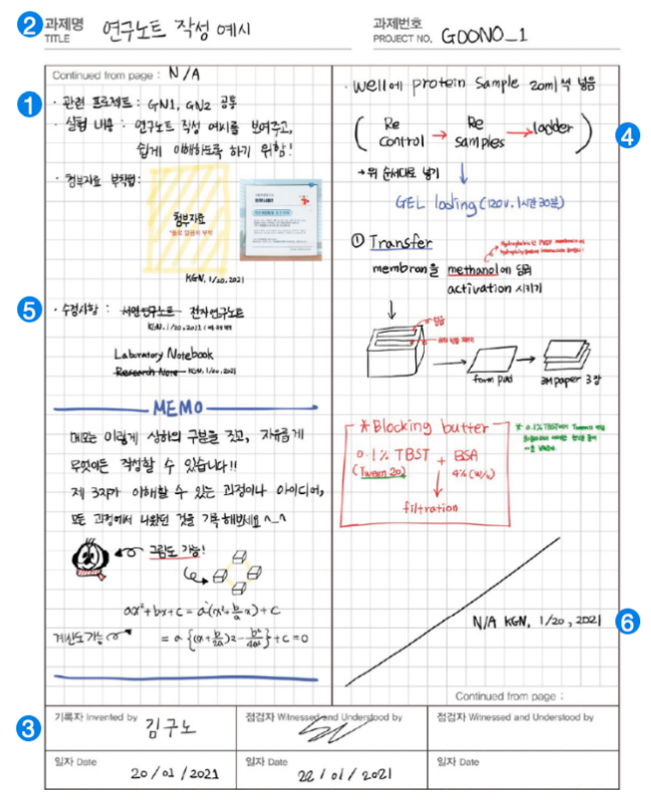 2 과제명 TITLE 연구노트 작성 예시
과제번호 PROJECT NO. GOONO_1
Continued from page : N/A
1 · 관련 프로젝트 : GN1, GN2 공통
· 실험 내용 : 연구노트 작성 예시를 보여주고,
쉽게 이해하도록 하기 위함!
· 첨부자료 부착법:
첨부자료
KGN, 1/20, 2021
5 · 수정사항 : 서면연구노트 전자연구노트
KGN, 1/20, 2021
Laboratory Notebook
Research Note KGN, 1/20, 2021
MEMO
메모는 이렇게 상하의 구분을 짓고, 자유롭게
무엇이든 작성할 수 있습니다!!
제 3자가 이해할 수 있는 과정이나 아이디어,
모든 과정에서 나왔던 것을 기록해보세요 ^_^
그림도 가능!
ax²+bx+c = a(x²+b/a x)+c
계산도 가능
= a {(x+b/2a)2 - b²/4a²}+c=0
· well에 protein sample 20ml씩 넣음
4 ( Re Control → Re Samples → ladder )
→ 위 순서대로 넣기
GEL loating (120V. 1시간 30분)
① Transfer
membran을 methanol에 담궈
activation 시키기
form pad
3M paper 3장
* Blocking butter
0.1% TBST + BSA
(Tween 20) 4% (w/v)
filtration
6 N/A KGN, 1/20, 2021
Continued from page :
3 기록자 Invented by 김구노
점검자 Witnessed and Understood by
점검자 Witnessed and Understood by
일자 Date 20/01/2021
일자 Date 22/01/2021
일자 Date